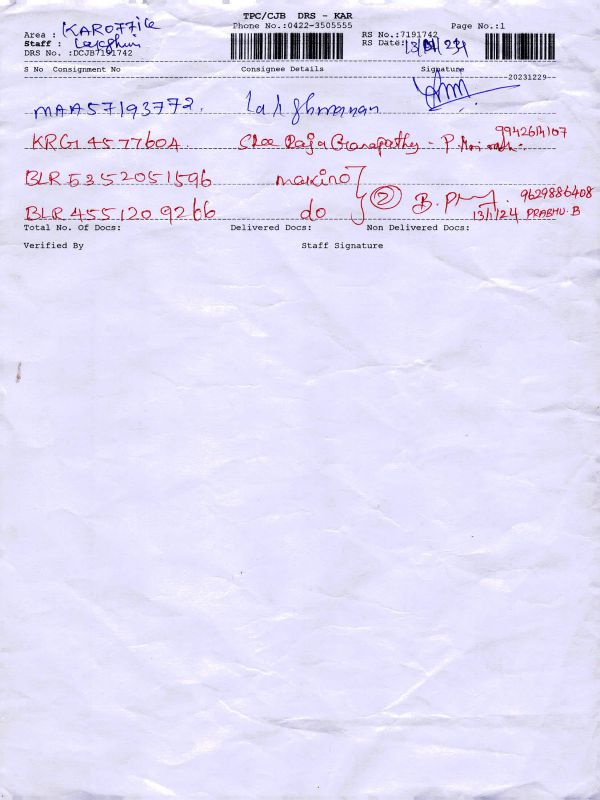 TPC/CJB DRS - KAR
Area : KAROFFICE Phone No.:0422-3505555 Page No.:1
Staff : RS No.:7191742
DRS No. :DCJB7191742 RS Date:13/
S No Consignment No Consignee Details Signature
20231229
MAA57193772. Lakshmanan
KRG14577604. Shree Raja Ganapathy - P. 9942614107
BLR5352051596 makino
BLR4551209266 do } ② B. 9629886408
13/1/24 PRABHU.B
Total No. Of Docs: Delivered Docs: Non Delivered Docs:
Verified By Staff Signature